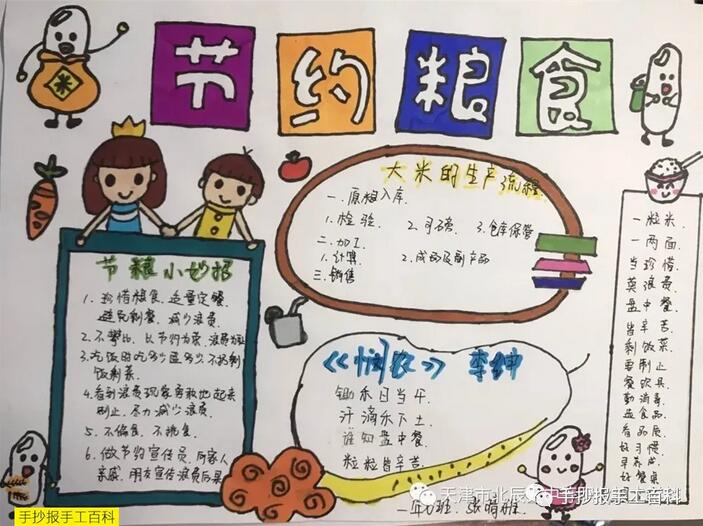 节约粮食
米
大米的生产流程
一. 原粮入库
1. 检验 2. 司磅 3. 仓库保管
二. 加工
1. 计算 2. 成品及副产品
三. 销售
节粮小妙招
1. 珍惜粮食、适量定餐
避免剩餐、减少浪费
2. 不攀比、以节约为荣、浪费为耻
3. 吃饭时吃多少盛多少不扔剩
饭剩菜
4. 看到浪费现象勇敢地起来
制止、尽力减少浪费
5. 不偏食、不挑食
6. 做节约宣传员、向家人
亲戚、朋友宣传浪费后果
《悯农》 李绅
锄禾日当午
汗滴禾下土
谁知盘中餐
粒粒皆辛苦
一粒米
一两面
当珍惜
莫浪费
盘中餐
皆辛苦
剩饭菜
要制止
餐饮具
勤消毒
选食品
看品质
好习惯
早养成
好餐桌
天津市北辰
手抄报手工百科
手抄报手工百科